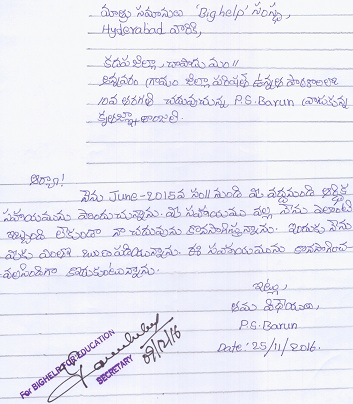 మాతృ సమానులు 'Bighelp' సంస్థ,
Hyderabad వారికి,
కడప జిల్లా, చాపాడు మం॥
అన్నవరం గ్రామం జిల్లా పరిషత్ ఉన్నత పాఠశాలలో
10వ తరగతి చదువుచున్న P.S. Barun వ్రాయుచున్న
కృతజ్ఞతాంజలి.
ఆర్యా!
నేను June-2015వ సం॥ నుండి మీ వద్దనుండి ఆర్థిక
సహాయమును పొందుచున్నాను. మీ సహాయము వల్ల నేను ఎలాంటి
ఇబ్బంది లేకుండా నా చదువును కొనసాగిస్తున్నాను. ఇందుకు నేను
మీకు ఎంతో ఋణపడియున్నాను. ఈ సహాయమును కొనసాగించ
వలసిందిగా కోరుకుంటున్నాను.
ఇట్లు,
తమ విధేయుడు,
P.S. Barun
Date: 25/11/2016.
For BIGHELP FOR EDUCATION
SECRETARY